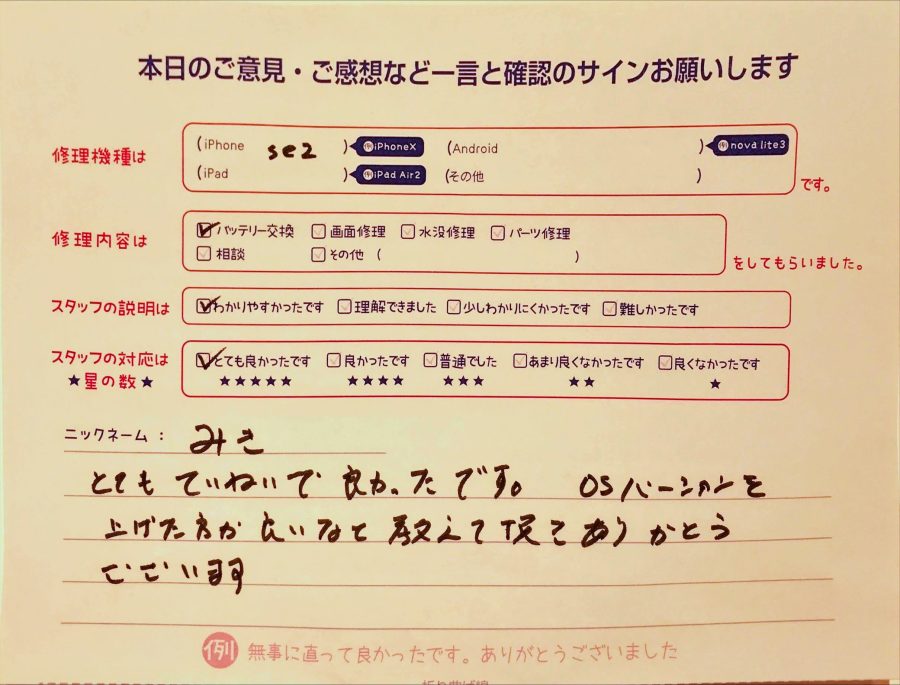 本日のご意見・ご感想など一言と確認のサインお願いします
修理機種は (iPhone se2 ) 例iPhoneX (Android ) 例nova lite3
(iPad ) 例iPad Air2 (その他 ) です。
修理内容は バッテリー交換 画面修理 水没修理 パーツ修理
相談 その他 ( ) をしてもらいました。
スタッフの説明は わかりやすかったです 理解できました 少しわかりにくかったです 難しかったです
スタッフの対応は とても良かったです 良かったです 普通でした あまり良くなかったです 良くなかったです
★星の数★ ★★★★★ ★★★★ ★★★ ★★ ★
ニックネーム： みさ
とても ていねいで 良かったです。 OSバージョンを
上げた方が良いなと 教えて頂き ありがとう
ございます
例 無事に直って良かったです。ありがとうございました